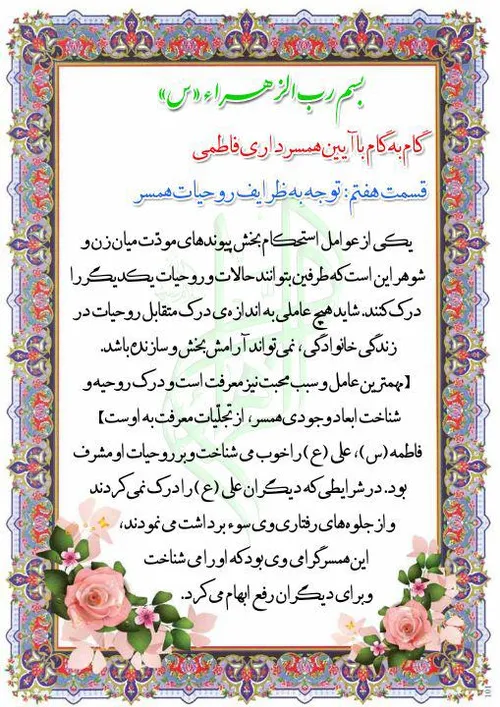 بسم رب الزهراء «س»
گام به گام با آیین همسرداری فاطمی
قسمت هفتم: توجه به ظرایف روحیات همسر
یکی از عوامل استحکام بخش پیوندهای مودّت میان زن و
شوهر این است که طرفین بتوانند حالات و روحیات یکدیگر را
درک کنند. شاید هیچ عاملی به اندازه‌ی درک متقابل روحیات در
زندگی خانوادگی، نمی‌تواند آرامش بخش و سازنده باشد.
[مهمترین عامل و سبب محبت نیز معرفت است و درک روحیه و
شناخت ابعاد وجودی همسر، از تجلّیات معرفت به اوست]
فاطمه (س)، علی (ع) را خوب می شناخت و بر روحیات او مشرف
بود. در شرایطی که دیگران علی (ع) را درک نمی کردند
و از جلوه‌های رفتاری وی سوء برداشت می نمودند،
این همسر گرامی وی بود که او را می شناخت
و برای دیگران رفع ابهام می کرد.
101